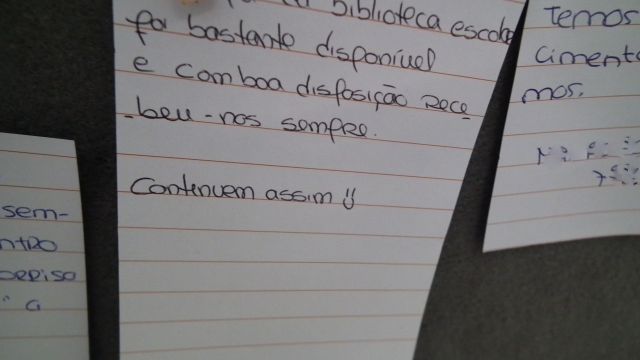 biblioteca escolar
foi bastante disponível
e com boa disposição rece
-beu-nos sempre.
Continuem assim
Temos
cimento
mos.
sem-
ntro
a